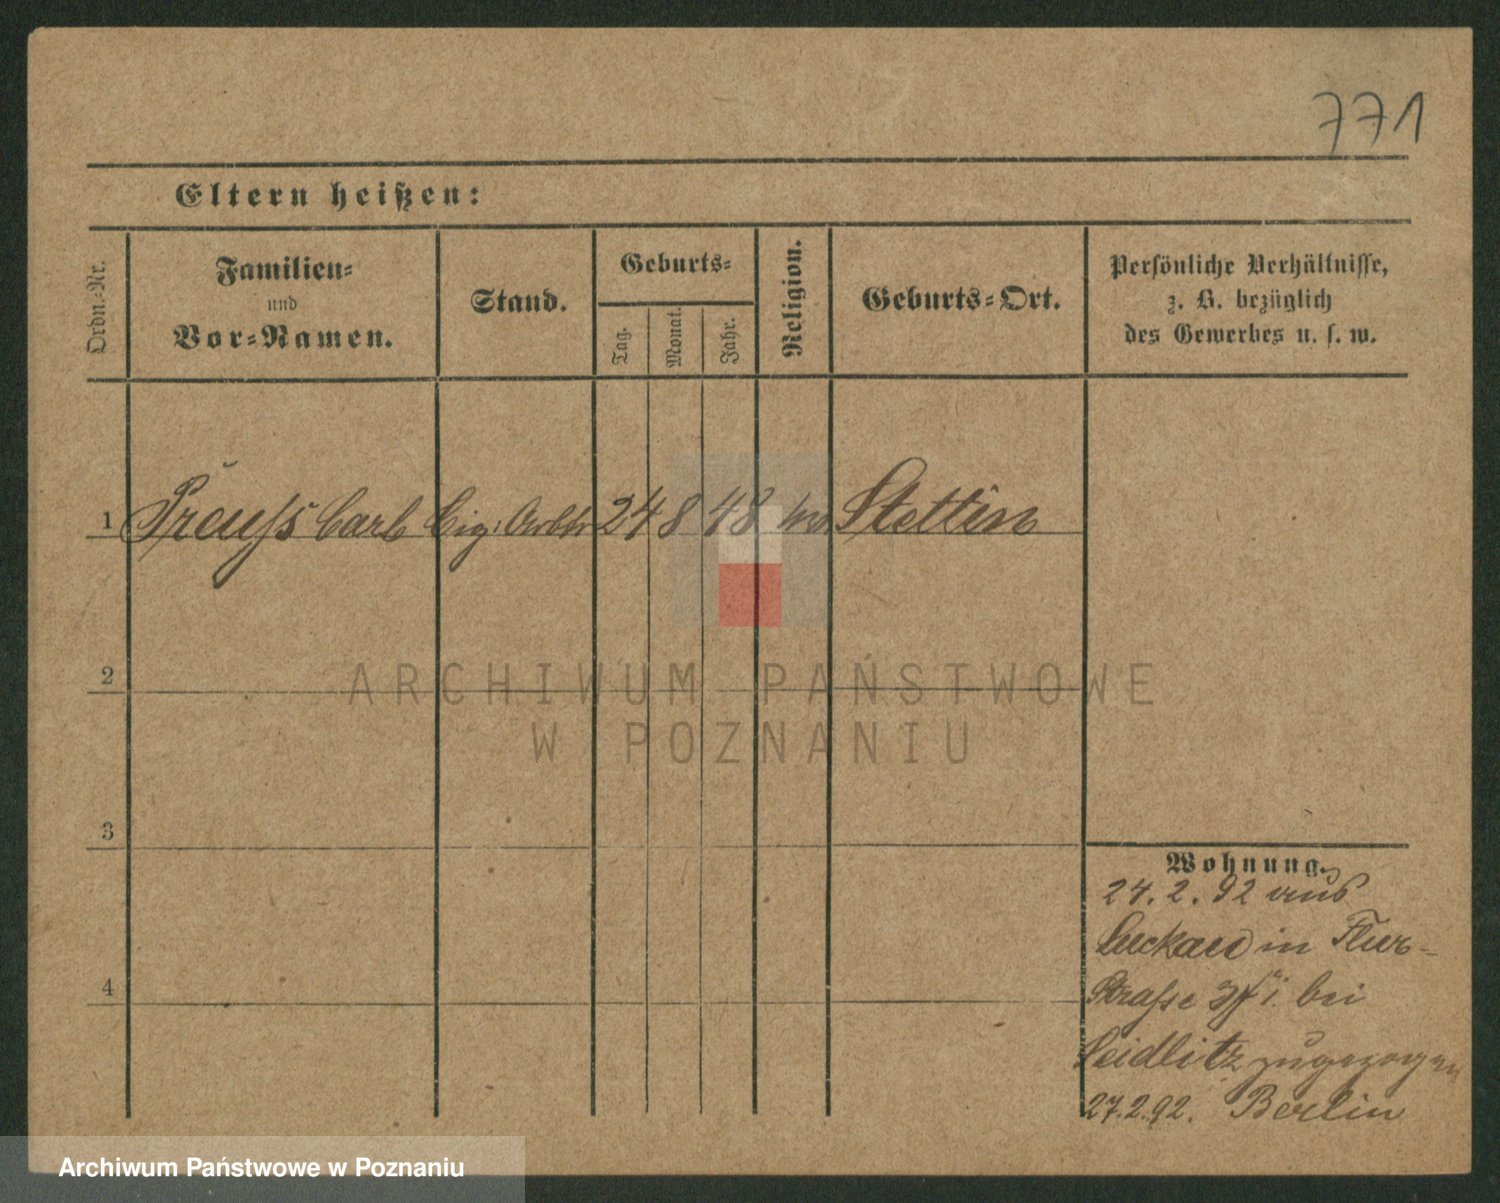 771
Eltern heißen:
Ordn.-Nr.
Familien-
und
Vor-Namen.
Stand.
Geburts-
Tag.
Monat.
Jahr.
Religion.
Geburts-Ort.
Persönliche Verhältnisse,
z. B. bezüglich
des Gewerbes u. s. w.
1 Preuß Carl Cig: Arbtr 24 8 48 Stettin
2
3
4
Wohnung.
24. 2. 92 aus
Luckau in Flur-
Straße bei
Seidlitz zugezogen
27.2.92. Berlin
ARCHIWUM PAŃSTWOWE
W POZNANIU
Archiwum Państwowe w Poznaniu